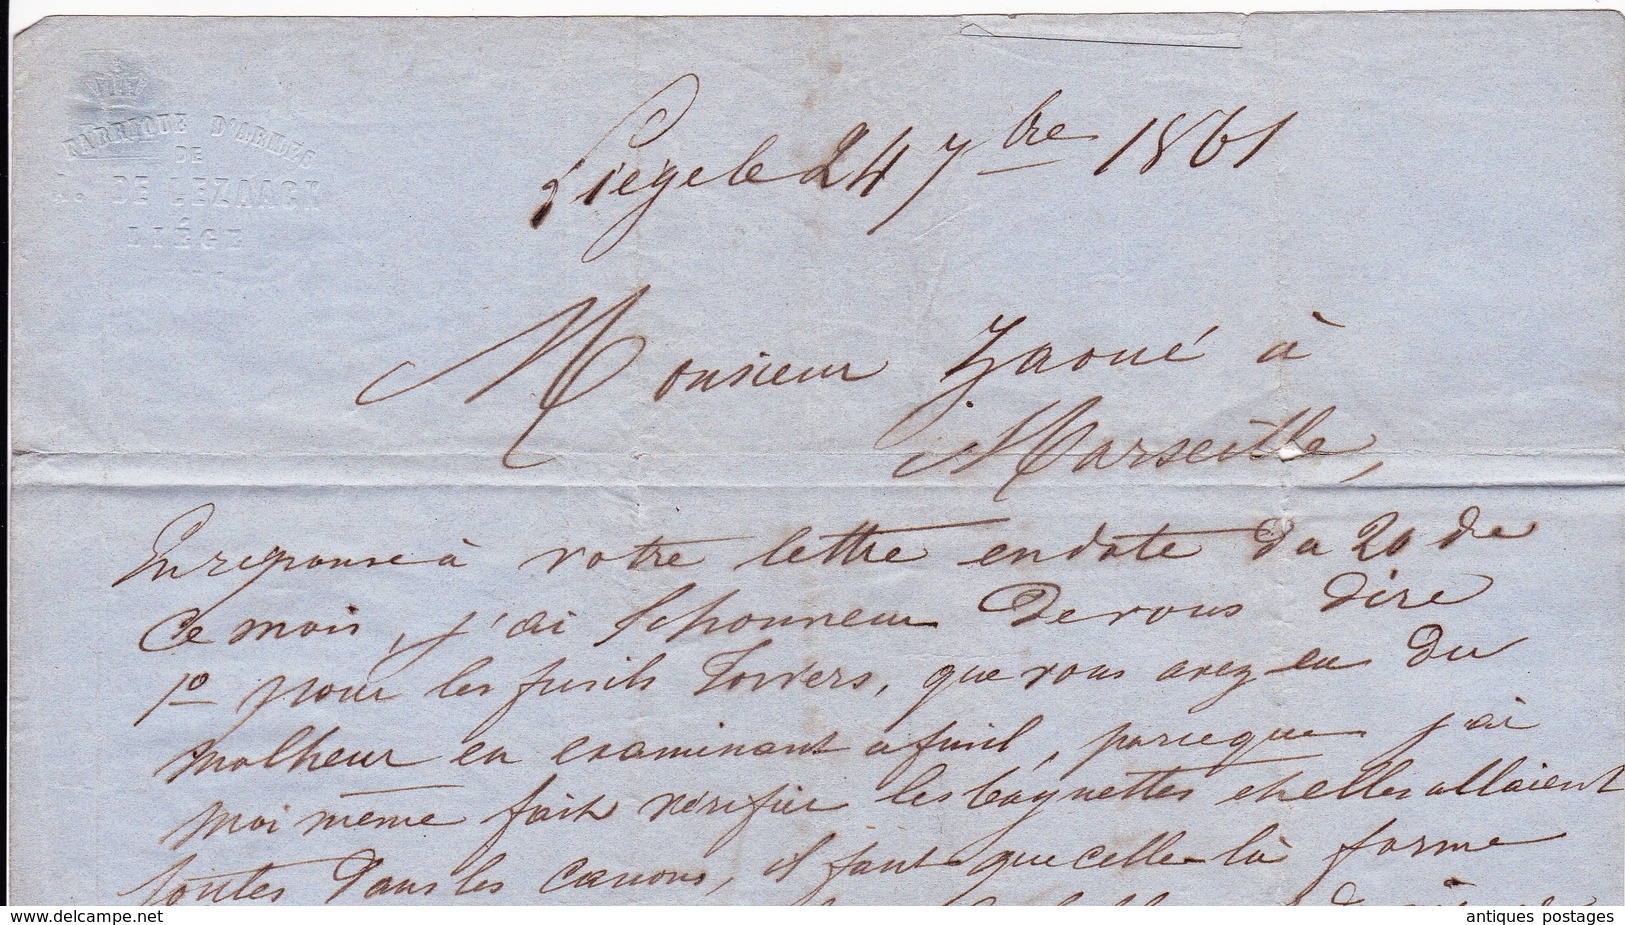 FABRIQUE D'ARMES
DE
J. DE LEZAACK
LIÉGE
Liége le 24 7bre 1861
Monsieur Zaoué à
Marseille,
En reponse à votre lettre en date du 20 de
ce mois, j'ai l'honneur de vous dire
1º pour les fusils Towers, que vous avez eu du
malheur en examinant a fusil, parceque j'ai
moi même fait vérifier les baguettes et elles allaient
toutes dans les canons, il faut que celle-là forme
www.delcampe.net
antiques postages